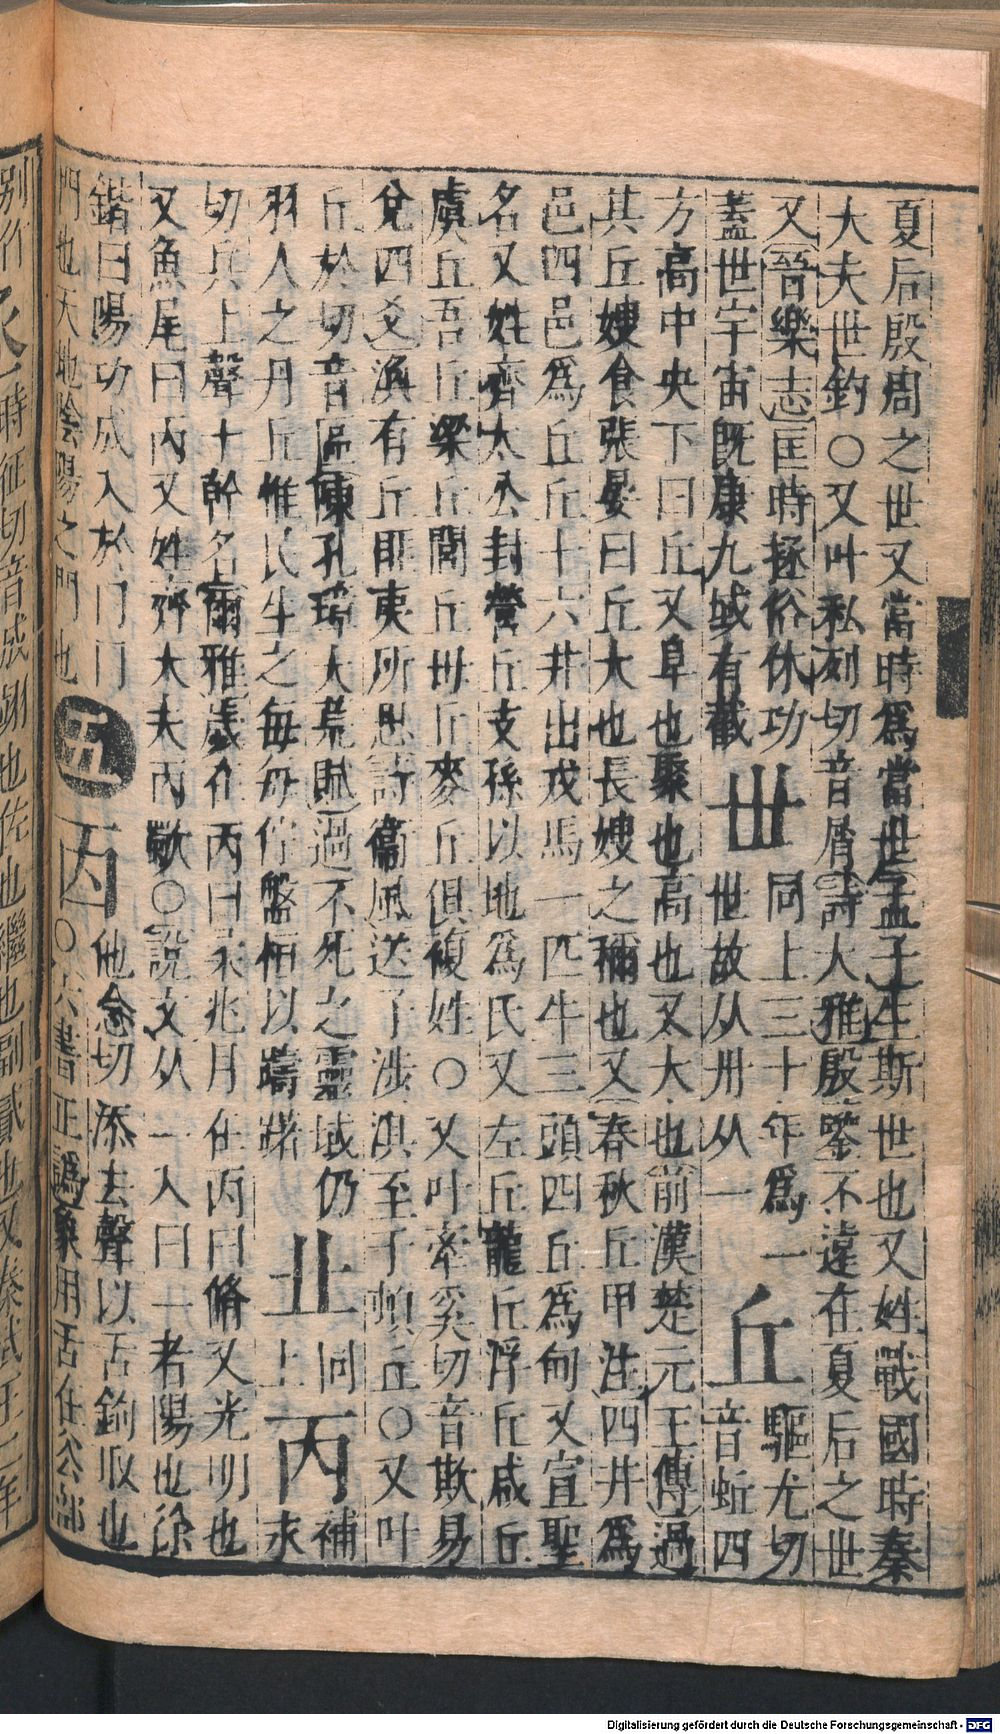 夏后殷周之世又當時爲當世孟子生斯世也又姓戰國時秦
大夫世鈞〇又叶私列切音屑詩大雅殷鑒不遠在夏后之世
又晉樂志匡時拯俗休功
蓋世宇宙既康九域有截
世
同上三十年爲一
世故从卅从一
丘
驅尤切
音蚯四
方高中央下曰丘又阜也聚也高也又大也前漢楚元王傳過
其丘嫂食張晏曰丘大也長嫂之稱也又春秋丘甲注四井爲
邑四邑爲丘丘十六井出戎馬一匹牛三頭四丘爲甸又宣聖
名又姓齊太公封營丘支孫以地爲氏又左丘龍丘浮丘咸丘
虞丘吾丘梁丘閭丘毌丘麥丘俱複姓〇又叶牽奚切音欺易
渙有丘匪夷所思詩衞風送子涉淇至于頓丘〇又叶
丘於切音區陳孔璋大荒賦過不死之靈域仍
羽人之丹丘惟民生之每每佇盤桓以躊躇
丠
同
上
丙
補
永
切兵上聲十幹名爾雅歲在丙曰柔兆月在丙曰修又光明也
又魚尾曰丙又姓齊大夫丙歜〇說文从一入冂一者陽也徐
鍇曰陽功成入於冂冂
門也天地陰陽之門也
五
㐁
他念切添去聲以舌鉤取也
〇六書正譌象用舌在公部
Digitalisierung gefördert durch die Deutsche Forschungsgemeinschaft - DFG